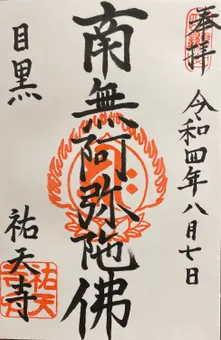 奉拝
令和四年八月七日
南無阿弥陀佛
目黒
祐天寺
祐天
寺印